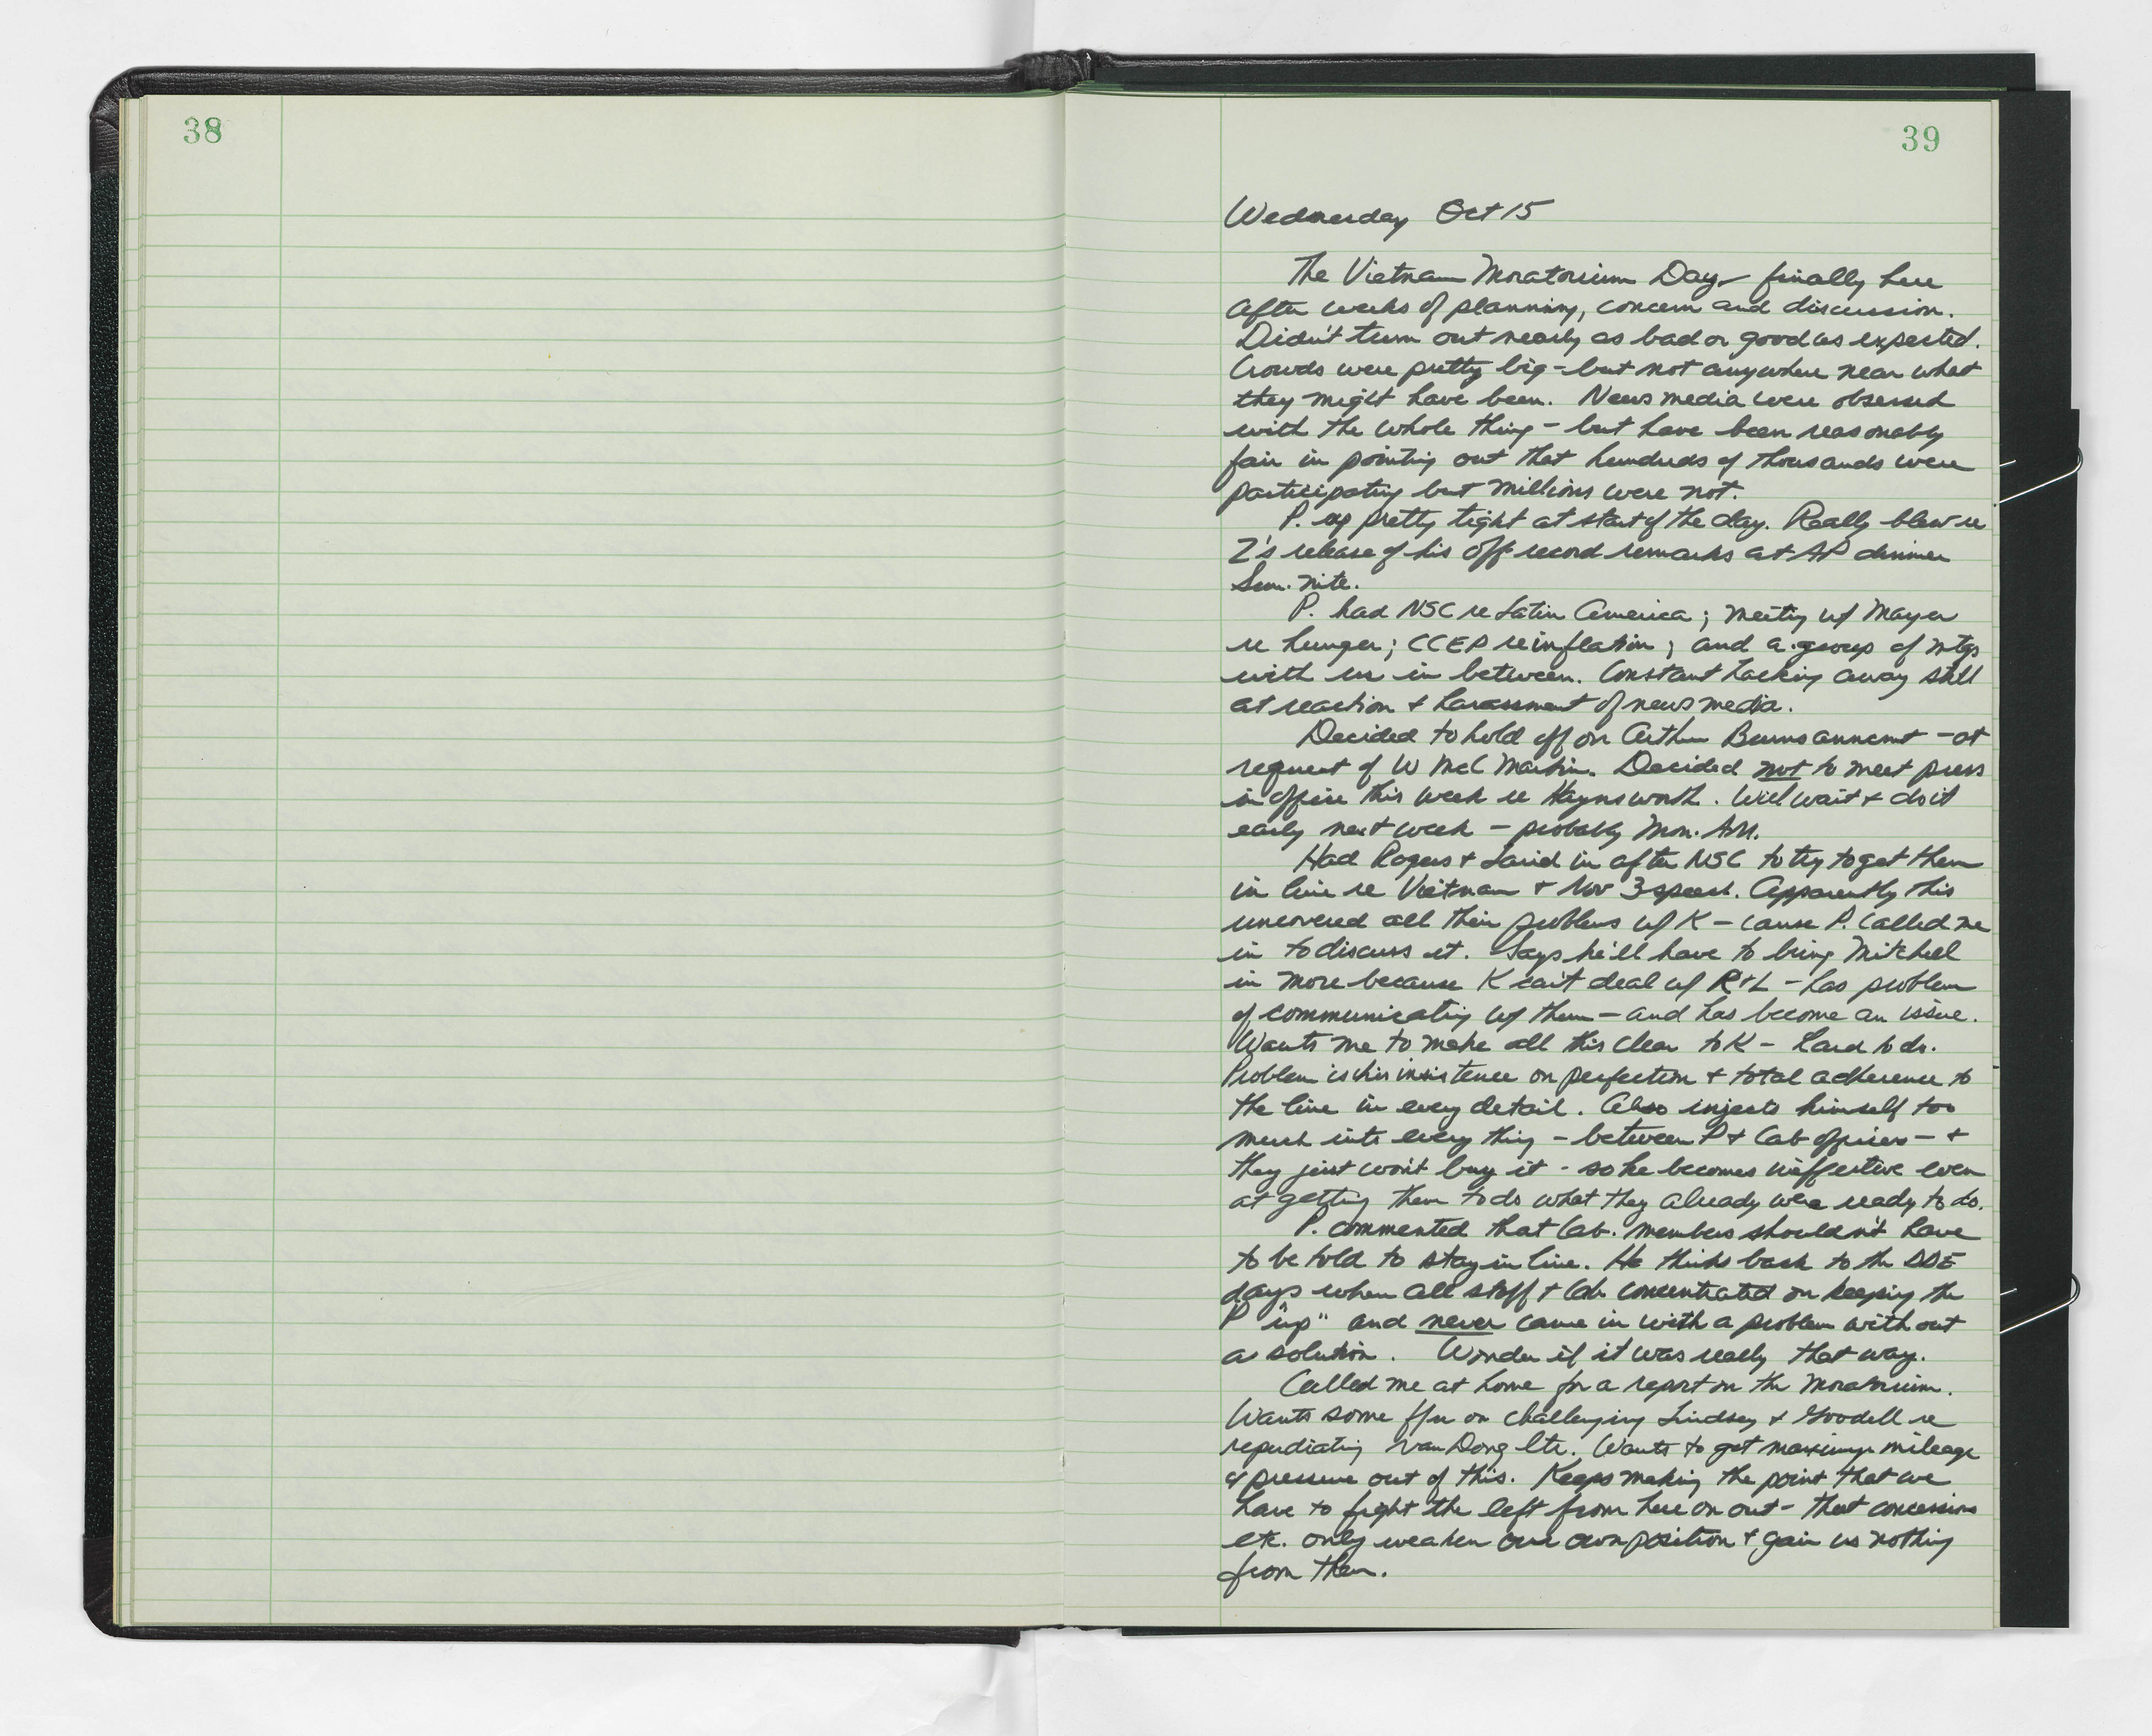 38
39
Wednesday Oct 15
The Vietnam Moratorium Day - finally here
after weeks of planning, concern and discussion.
Didn't turn out nearly as bad or good as expected.
Crowds were pretty big - but not anywhere near what
they might have been. News media were obsessed
with the whole thing - but have been reasonably
fair in pointing out that hundreds of thousands were
participating but millions were not.
P. up pretty tight at start of the day. Really blew re
Z's release of his off record remarks at AP dinner
Sun. nite.
P. had NSC re Latin America; meeting w/ Mayer
re hunger; CCEP re inflation; and a group of mtgs
with us in between. Constant hacking away still
at reaction + harassment of news media.
Decided to hold off on Arthur Burns anncmt - at
request of W McC Martin. Decided not to meet press
in office this week re Haynsworth. Will wait + do it
early next week - probably Mon. AM.
Had Rogers + Laird in after NSC to try to get them
in line re Vietnam + Nov 3 speech. Apparently this
uncovered all their problems w/ K - cause P. called me
in to discuss it. Says he'll have to bring Mitchell
in more because K can't deal w/ R+L - has problem
of communicating w/ them - and has become an issue.
Wants me to make all this clear to K - hard to do.
Problem is his insistence on perfection + total adherence to
the line in every detail. Also injects himself too
much into every thing - between P + Cab officers - +
they just won't buy it - so he becomes ineffective even
at getting them to do what they already were ready to do.
P. commented that Cab. members shouldn't have
to be told to stay in line. He thinks back to the DDE
days when all staff + Cab concentrated on keeping the
P "up" and never came in with a problem without
a solution. Wonder if it was really that way.
Called me at home for a report on the Moratorium.
Wants some f/u on challenging Lindsey + Goodell re
repudiating Van Dong ltr. Wants to get maximum mileage
& pressure out of this. Keeps making the point that we
have to fight the left from here on out - that concessions
etc. only weaken our own position + gain us nothing
from them.